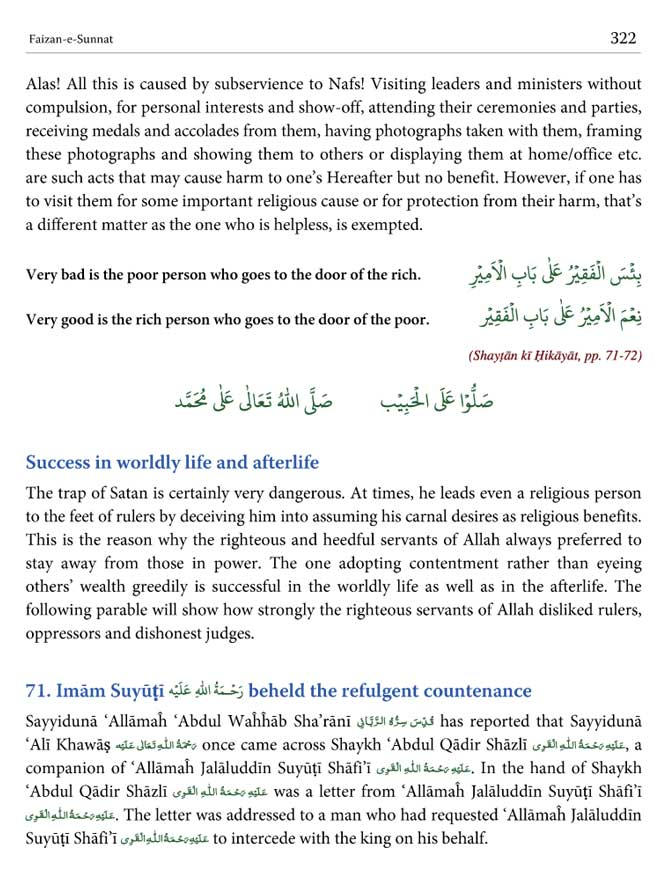 Faizan-e-Sunnat 322
Alas! All this is caused by subservience to Nafs! Visiting leaders and ministers without
compulsion, for personal interests and show-off, attending their ceremonies and parties,
receiving medals and accolades from them, having photographs taken with them, framing
these photographs and showing them to others or displaying them at home/office etc.
are such acts that may cause harm to one’s Hereafter but no benefit. However, if one has
to visit them for some important religious cause or for protection from their harm, that’s
a different matter as the one who is helpless, is exempted.
Very bad is the poor person who goes to the door of the rich. بِئْسَ الْفَقِيْرُ عَلٰى بَابِ الْاَمِيْرِ
Very good is the rich person who goes to the door of the poor. نِعْمَ الْاَمِيْرُ عَلٰى بَابِ الْفَقِيْرِ
(Shayṭān kī Ḥikāyāt, pp. 71-72)
صَلُّوْا عَلَى الْحَبِيْب صَلَّى اللهُ تَعَالٰى عَلٰى مُحَمَّد
Success in worldly life and afterlife
The trap of Satan is certainly very dangerous. At times, he leads even a religious person
to the feet of rulers by deceiving him into assuming his carnal desires as religious benefits.
This is the reason why the righteous and heedful servants of Allah always preferred to
stay away from those in power. The one adopting contentment rather than eyeing
others’ wealth greedily is successful in the worldly life as well as in the afterlife. The
following parable will show how strongly the righteous servants of Allah disliked rulers,
oppressors and dishonest judges.
71. Imām Suyūṭī رَحْمَةُ اللهِ عَلَيْه beheld the refulgent countenance
Sayyidunā ‘Allāmaĥ ‘Abdul Waĥĥāb Sha’rānī قُدِّسَ سِرُّهُ الرَّبَّانِى has reported that Sayyidunā
‘Alī Khawāṣ رَحْمَةُ اللهِ تَعَالٰى عَلَيْه once came across Shaykh ‘Abdul Qādir Shāzlī عَلَيْهِ رَحْمَةُ اللهِ الْقَوِى, a
companion of ‘Allāmaĥ Jalāluddīn Suyūṭī Shāfi’ī عَلَيْهِ رَحْمَةُ اللهِ الْقَوِى. In the hand of Shaykh
‘Abdul Qādir Shāzlī عَلَيْهِ رَحْمَةُ اللهِ الْقَوِى was a letter from ‘Allāmaĥ Jalāluddīn Suyūṭī Shāfi’ī
عَلَيْهِ رَحْمَةُ اللهِ الْقَوِى. The letter was addressed to a man who had requested ‘Allāmaĥ Jalāluddīn
Suyūṭī Shāfi’ī عَلَيْهِ رَحْمَةُ اللهِ الْقَوِى to intercede with the king on his behalf.